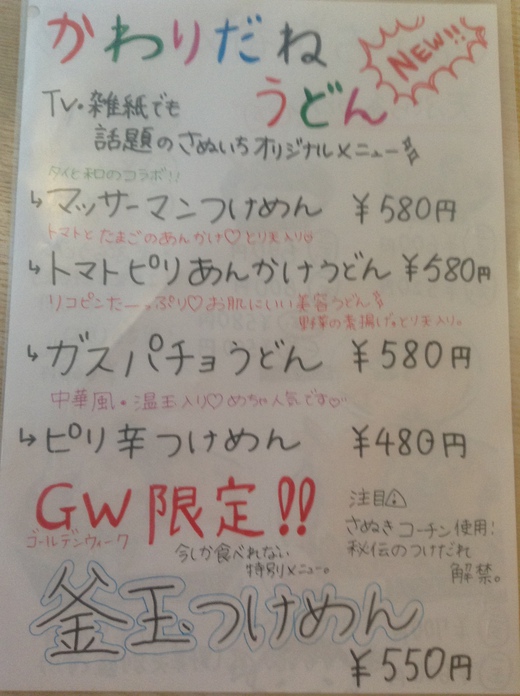 かわりだね
NEW!!
うどん
TV・雑紙でも
話題のさぬいちオリジナルメニュー
タイと和のコラボ!!
↳マッサーマンつけめん ¥580円
トマトとたまごのあんかけ♡とり天入り
↳トマトピリあんかけうどん ¥580円
リコピンたーっぷり♡お肌にいい美容うどん
野菜の素揚げ。とり天入り。
↳ガスパチョうどん ¥580円
中華風・温玉入り♡めちゃ人気です♡
↳ピリ辛つけめん ¥480円
GW限定!!
ゴールデンウィーク
今しか食べれない
特別メニュー。
注目
さぬきコーチン使用!
秘伝のつけだれ
解禁。
釜玉つけめん
¥550円